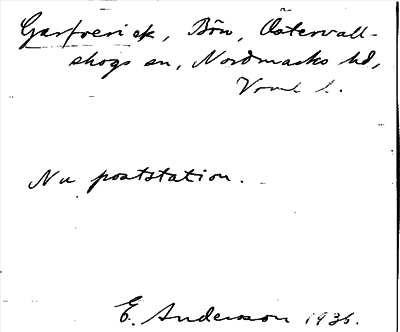 Gasfverick, Bön, Östervall-
skogs sn, Nordmarks hd,
Verml l.
Nu poststation.
E. Anderson 1936.